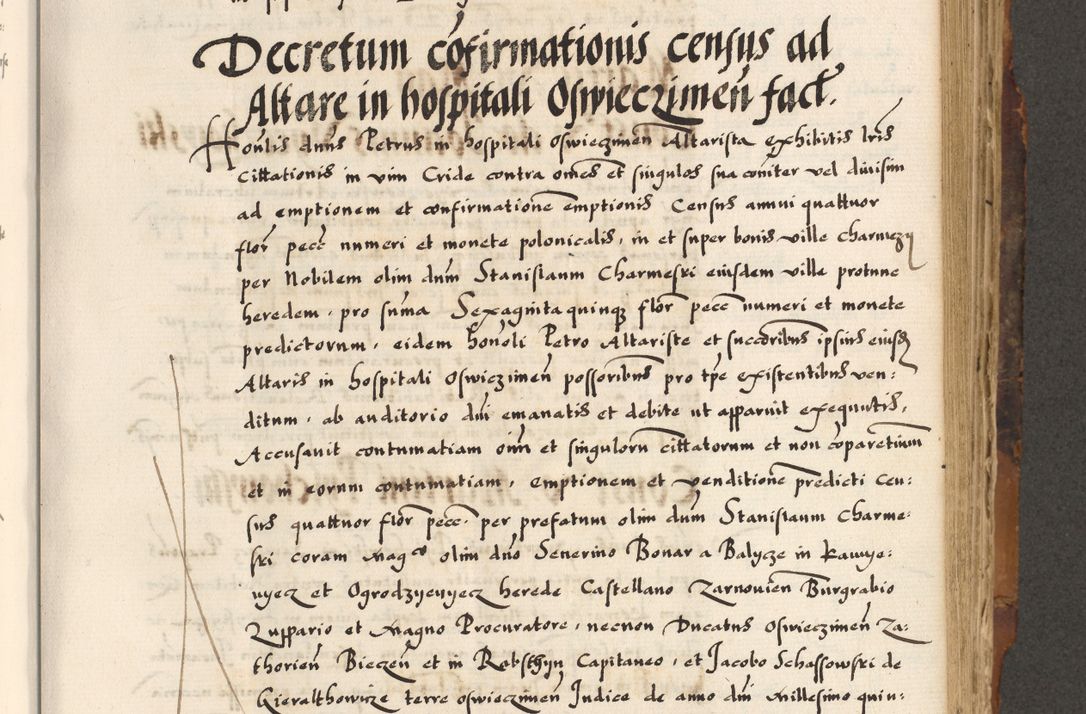 Decretum cõfirmationis census ad
Altare in hospitali Oswieczimeñ fact.
Honlis dnus Petrus in hospitali Oswieczimeñ Altarista exhibitis lris
Cittationis in vim Cride contra omes et singulos sua coniter vel divisim
ad emptionem et confirmatione emptionis Census annui quattuor
flor pecc numeri et monete polonicalis, in et super bonis ville Charmezy
per Nobilem olim dnm Stanislaum Charmeski eiusdem ville protunc
heredem, pro suma Sexaginta quinqz flor pecc numeri et monete
predictorum, eidem honoli Petro Altariste et succoribus ipsius eiusd
Altaris in hospitali Oswieczimeñ possoribus pro tpe existentibus ven:
ditum, ab auditorio dni emanatis et debite ut apparuit exequutis,
Accusavit contumatiam oim et singulorum cittatorum et non cõparetium
et in eorum contumatiam, emptionem et venditione predicti Cen:
sus quattuor flor pecc, per prefatum olim dnm Stanislaum Charme:
ski coram Magco olim dno Severino Bonar a Balycze in Kamye:
nyecz et Ogrodzyenyecz herede Castellano Zarnovieñ Burgrabio
Zuppario et Magno Procuratore, necnon Ducatus Oswieczimeñ Za:
thorieñ Bieczeñ et in Rabsthyn Capitaneo, et Jacobo Schassowski de
Gieralthowicze terre Oswieczimeñ Judice de anno dni Millesimo quin: